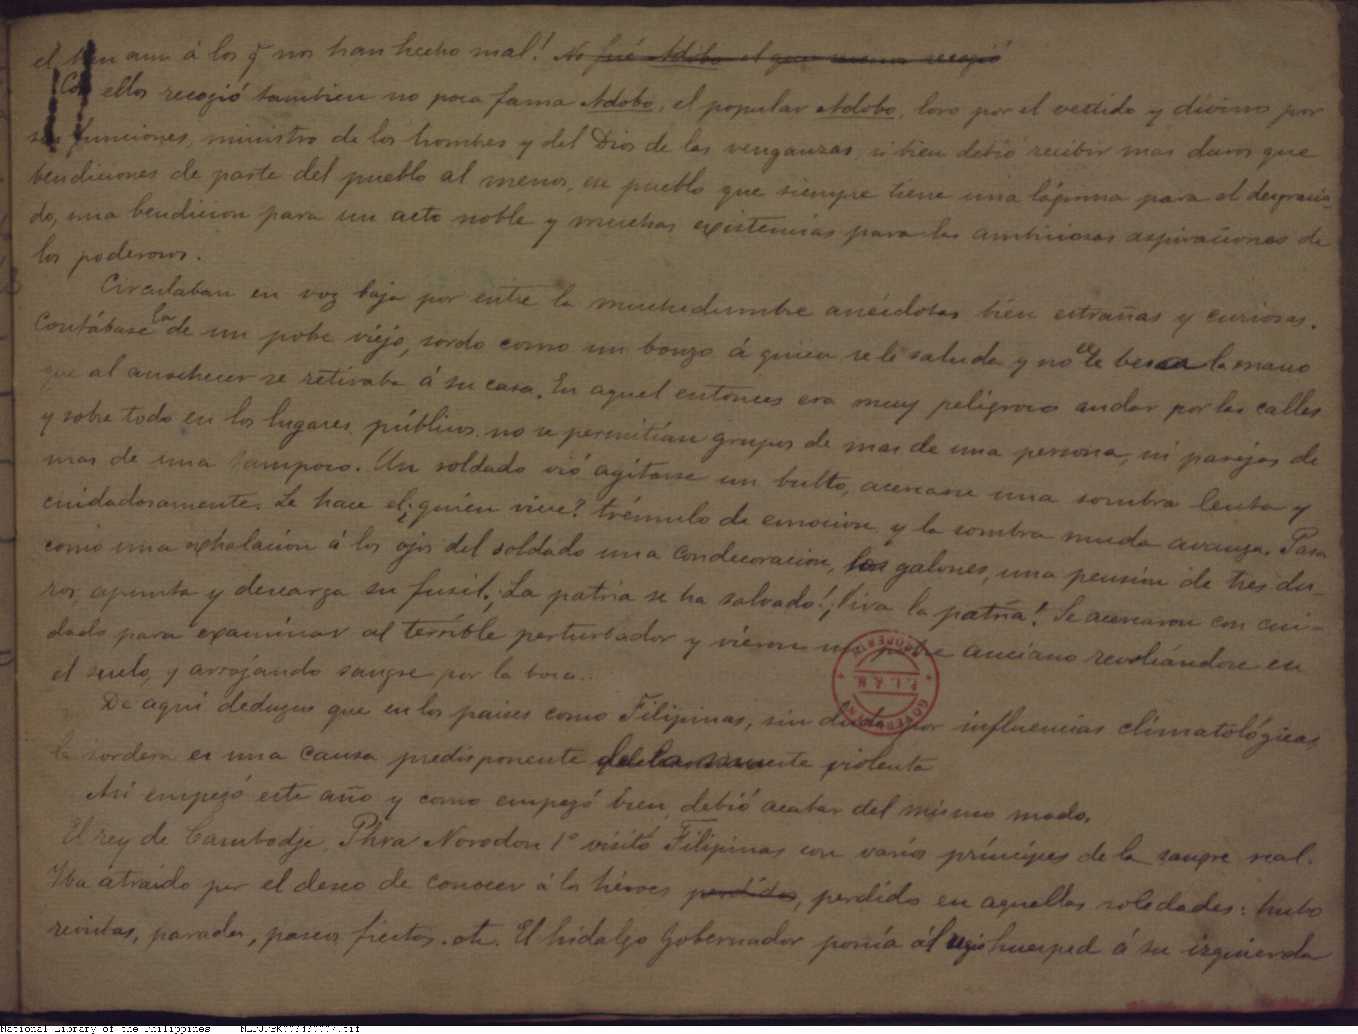 el bien aun á los q̃ nos han hecho mal! No fué Adobo el que menos recogió
Con ellos recogió tambien no poca fama Adobo, el popular Adobo, loro por el vestido y divino por
sus funciones, ministro de los hombres y del Dios de las venganzas, si bien debió recibir mas duros que
bendiciones de parte del pueblo al menos, ese pueblo que siempre tiene una lágrima para el desgracia-
do, una bendicion para un acto noble y muchas existencias para las ambiciosas aspiraciones de
los poderosos.
Circulaban en voz baja por entre la muchedumbre anécdotas bien estrañas y curiosas.
Contábase la de un pobre viéjo, sordo como un bonzo á quien se le saluda y no se le besa la mano
que al anochecer se retiraba á su casa. En aquel entonces era muy peligroso andar por las calles
y sobre todo en los lugares públicos. no se permitían grupos de mas de una persona, ni parejas de
mas de una tampoco. Un soldado vió agitarse un bulto, acercarse una sombra lenta y
cuidadosamente. Le hace el ¿quién vive? trémulo de emocion y la sombra muda avanza. Pasa
como una exhalacion á los ojos del soldado una condecoracion, los galones, una pension de tres du-
ros, apunta y descarga su fusil. ¡La patria se ha salvado! ¡Viva la patria! Se acercaron con cui-
dado para examinar al terrible perturbador y vieron un pobre anciano revolcándose en
el suelo, y arrojando sangre por la boca.
De aquí deduzco que en los paises como Filipinas, sin duda por influencias climatológicas,
la sordera es una causa predisponente de la muerte violenta
Así empezó este año y como empezó bien, debió acabar del mismo modo.
El rey de Cambodje, Phra Norodon 1º visitó Filipinas con varios príncipes de la sangre real.
Iba atraido por el deseo de conocer á los héroes perdidos, perdido en aquellas soledades: hubo
revistas, paradas, paseos fiestas. etc. El hidalgo Gobernador ponía ál regio huesped á su izquierda
GOVERNMENT
P. L. & M.
PROPERTY
National Library of the Philippines